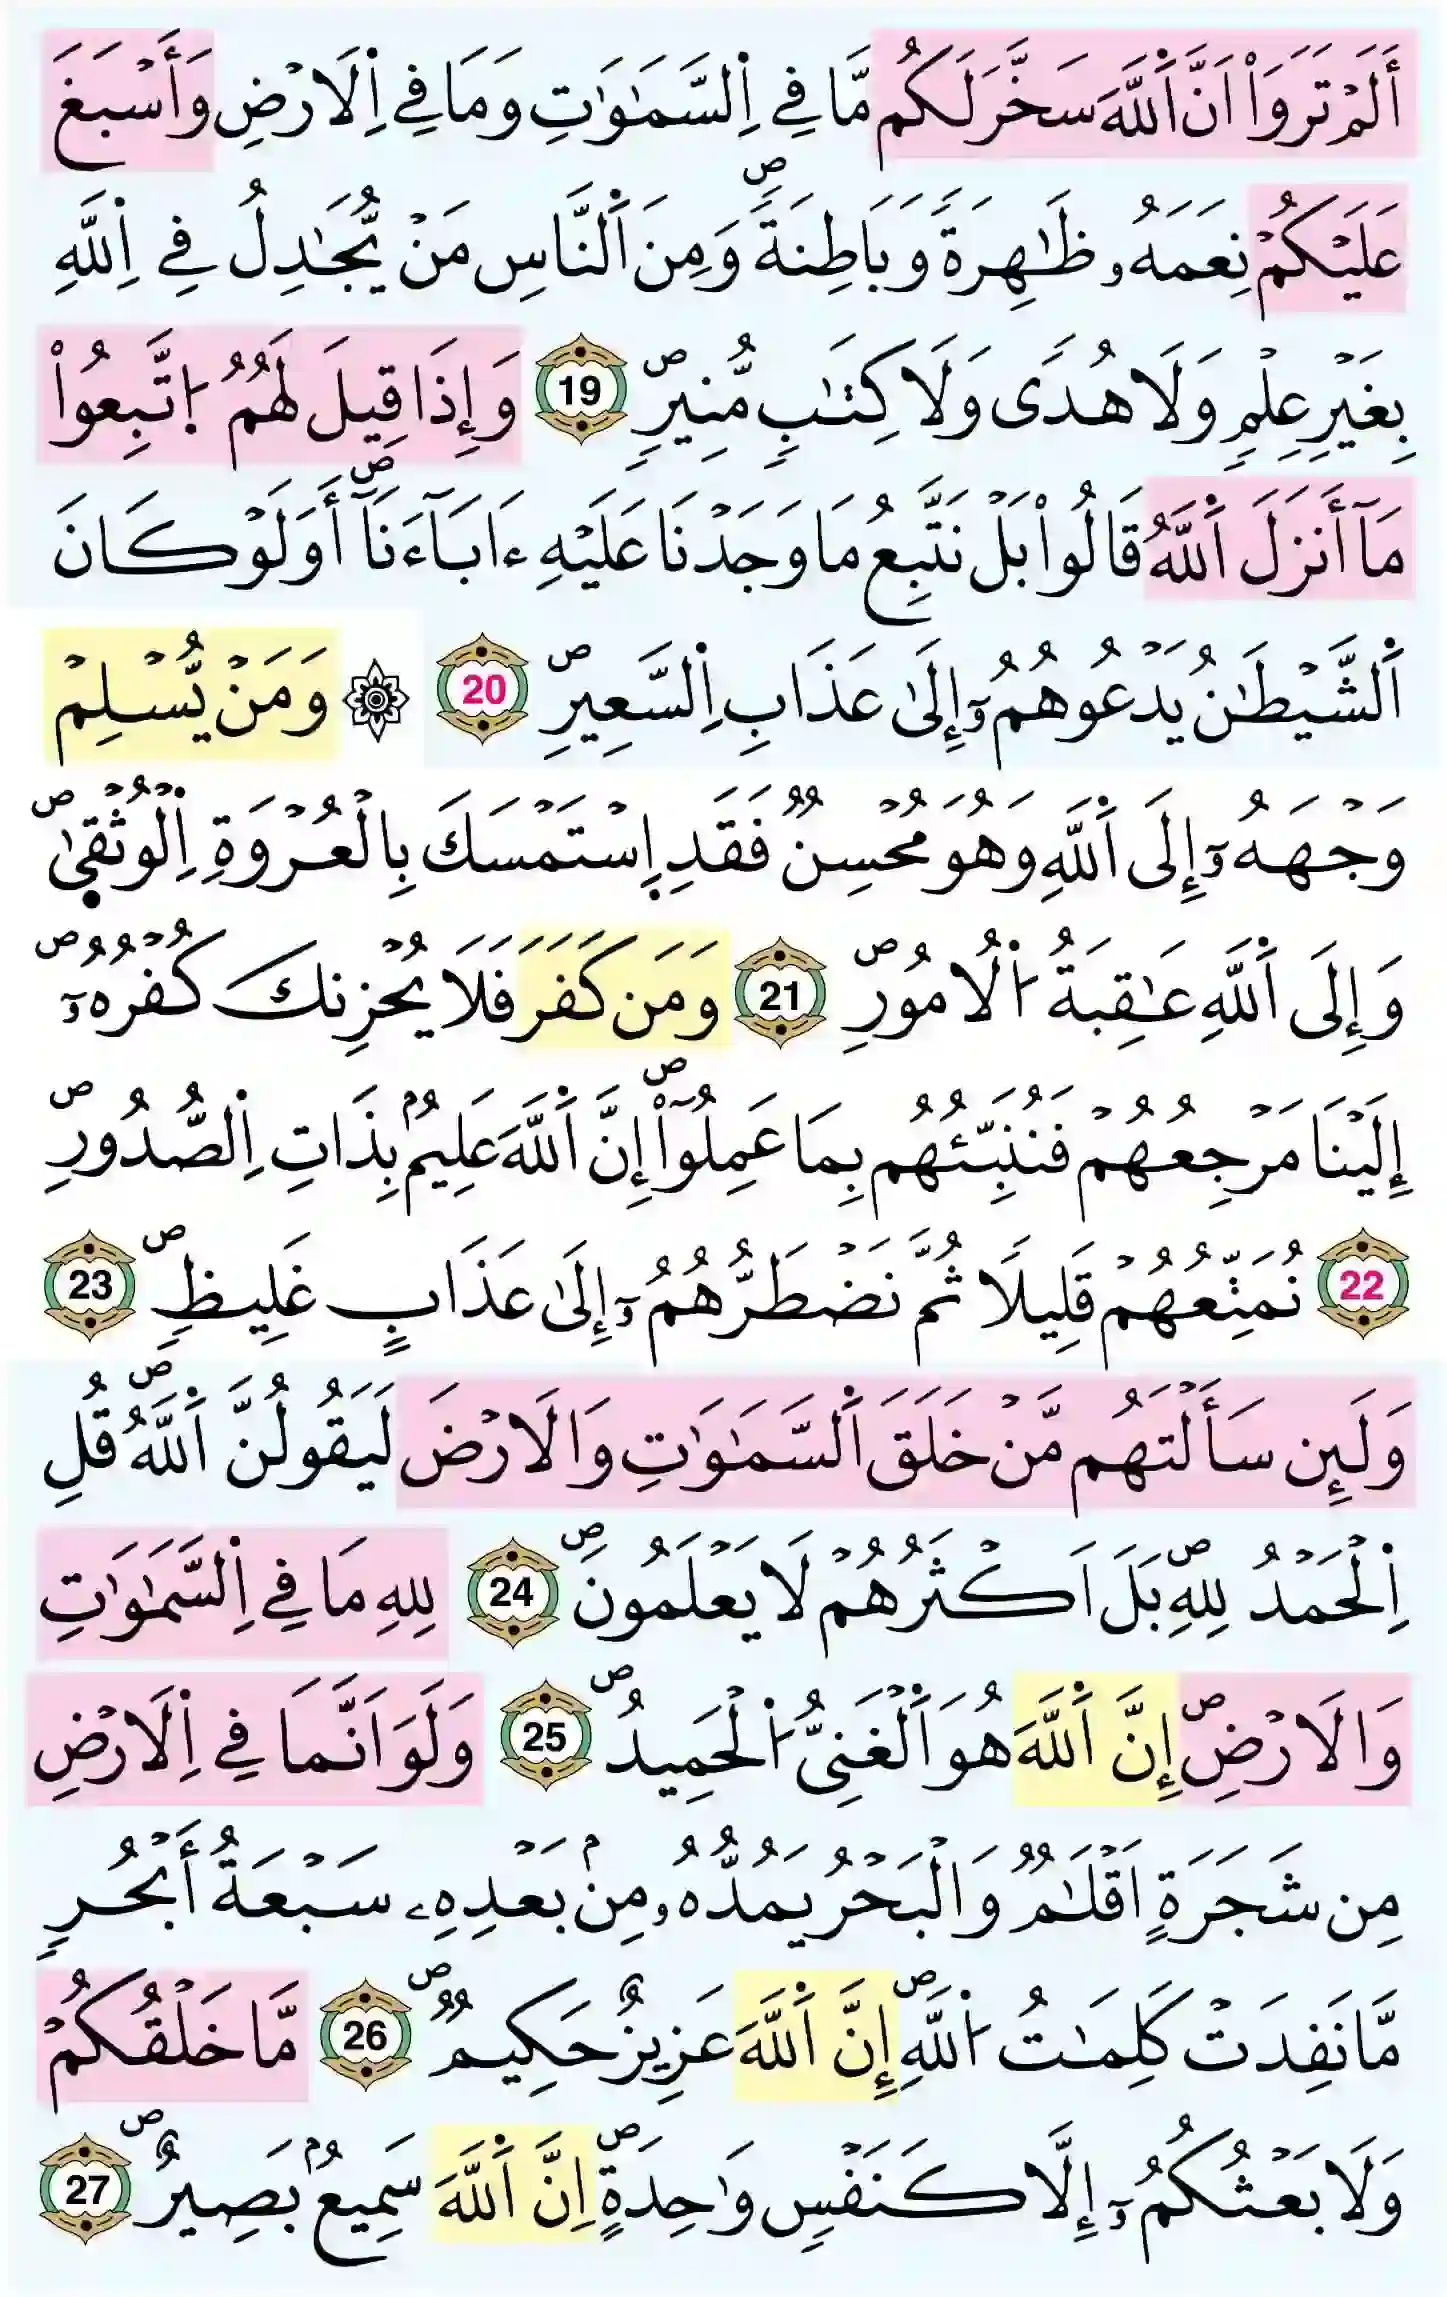 أَلَمْ تَرَوَاْ اَنَّ اَ۬للَّهَ سَخَّرَ لَكُم مَّا فِے اِ۬لسَّمَٰوَٰتِ وَمَا فِے اِ۬لَارْضِ وَأَسْبَغَ
عَلَيْكُمْ نِعَمَهُۥ ظَٰهِرَةٗ وَبَاطِنَةٗۖ وَمِنَ اَ۬لنَّاسِ مَنْ يُّجَٰدِلُ فِے اِ۬للَّهِ
بِغَيْرِ عِلْمٖ وَلَا هُدٗى وَلَا كِتَٰبٖ مُّنِيرٖۖ 19 وَإِذَا قِيلَ لَهُمُ اُ۪تَّبِعُواْ
مَآ أَنزَلَ اَ۬للَّهُ قَالُواْ بَلْ نَتَّبِعُ مَا وَجَدْنَا عَلَيْهِ ءَابَآءَنَآۖ أَوَلَوْ كَانَ
اَ۬لشَّيْطَٰنُ يَدْعُوهُمُۥٓ إِلَىٰ عَذَابِ اِ۬لسَّعِيرِۖ 20 ۞ وَمَنْ يُّسْلِمْ
وَجْهَهُۥٓ إِلَى اَ۬للَّهِ وَهُوَ مُحْسِنٞ فَقَدِ اِ۪سْتَمْسَكَ بِالْعُرْوَةِ اِ۬لْوُثْق۪ىٰۖ
وَإِلَى اَ۬للَّهِ عَٰقِبَةُ اُ۬لُامُورِۖ 21 وَمَن كَفَرَ فَلَا يُحْزِنكَ كُفْرُهُۥٓۖ
إِلَيْنَا مَرْجِعُهُمْ فَنُنَبِّئُهُم بِمَا عَمِلُوٓاْۖ إِنَّ اَ۬للَّهَ عَلِيمُۢ بِذَاتِ اِ۬لصُّدُورِۖ
22 نُمَتِّعُهُمْ قَلِيلاٗ ثُمَّ نَضْطَرُّهُمُۥٓ إِلَىٰ عَذَابٍ غَلِيظٖۖ 23
وَلَئِن سَأَلْتَهُم مَّنْ خَلَقَ اَ۬لسَّمَٰوَٰتِ وَالَارْضَ لَيَقُولُنَّ اَ۬للَّهُۖ قُلِ
اِ۬لْحَمْدُ لِلهِۖ بَلَ اَكْثَرُهُمْ لَا يَعْلَمُونَۖ 24 لِلهِ مَا فِے اِ۬لسَّمَٰوَٰتِ
وَالَارْضِۖ إِنَّ اَ۬للَّهَ هُوَ اَ۬لْغَنِيُّ اُ۬لْحَمِيدُۖ 25 وَلَوَ اَنَّمَا فِے اِ۬لَارْضِ
مِن شَجَرَةٍ اَقْلَٰمٞ وَالْبَحْرُ يَمُدُّهُۥ مِنۢ بَعْدِهِۦ سَبْعَةُ أَبْحُرٖ
مَّا نَفِدَتْ كَلِمَٰتُ اُ۬للَّهِۖ إِنَّ اَ۬للَّهَ عَزِيزٌ حَكِيمٞۖ 26 مَّا خَلْقُكُمْ
وَلَا بَعْثُكُمُۥٓ إِلَّا كَنَفْسٖ وَٰحِدَةٍۖ اِنَّ اَ۬للَّهَ سَمِيعُۢ بَصِيرٌۖ 27